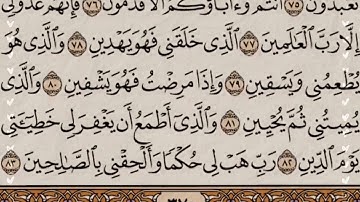 تَعْبُدُونَ ٧٥ أَنتُمْ وَءَابَآؤُكُمُ ٱلْأَقْدَمُونَ ٧٦ فَإِنَّهُمْ عَدُوٌّ لِّىٓ
إِلَّا رَبَّ ٱلْعَـٰلَمِينَ ٧٧ ٱلَّذِى خَلَقَنِى فَهُوَ يَهْدِينِ ٧٨ وَٱلَّذِى هُوَ
يُطْعِمُنِى وَيَسْقِينِ ٧٩ وَإِذَا مَرِضْتُ فَهُوَ يَشْفِينِ ٨٠ وَٱلَّذِى
يُمِيتُنِى ثُمَّ يُحْيِينِ ٨١ وَٱلَّذِىٓ أَطْمَعُ أَن يَغْفِرَ لِى خَطِيٓـَٔتِى
يَوْمَ ٱلدِّينِ ٨٢ رَبِّ هَبْ لِى حُكْمًا وَأَلْحِقْنِى بِٱلصَّـٰلِحِينَ ٨٣
٣٧٠